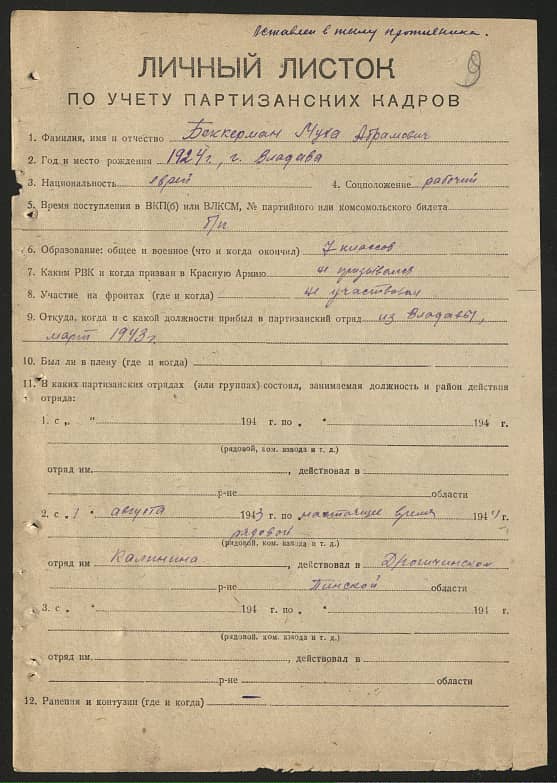 Оставлен в тылу противника.
9
ЛИЧНЫЙ ЛИСТОК
ПО УЧЕТУ ПАРТИЗАНСКИХ КАДРОВ
1. Фамилия, имя и отчество Беккерман Муха Абрамович
2. Год и место рождения 1924 г., г. Владава
3. Национальность еврей 4. Соцположение рабочий
5. Время поступления в ВКП(б) или ВЛКСМ, № партийного или комсомольского билета
б/п
6. Образование: общее и военное (что и когда окончил) 7 классов
7. Каким РВК и когда призван в Красную Армию не призывался
8. Участие на фронтах (где и когда) не участвовал
9. Откуда, когда и с какой должности прибыл в партизанский отряд из Владавы,
март 1943 г.
10. Был ли в плену (где и когда)
11. В каких партизанских отрядах (или группах) состоял, занимаемая должность и район действия
отряда:
1. с „ " 194 г. по „ " 194 г.
(рядовой, ком. взвода и т. д.)
отряд им. , действовал в
р-не области
2. с 1 " августа 1943 г. по настоящее время 1944 г.
рядовой
(рядовой, ком. взвода и т. д.)
отряд им Калинина , действовал в Дрогичинском
р-не Пинской области
3. с „ " 194 г. по „ " 194 г.
(рядовой, ком. взвода и т. д.)
отряд им. , действовал в
р-не области
12. Ранения и контузии (где и когда) —